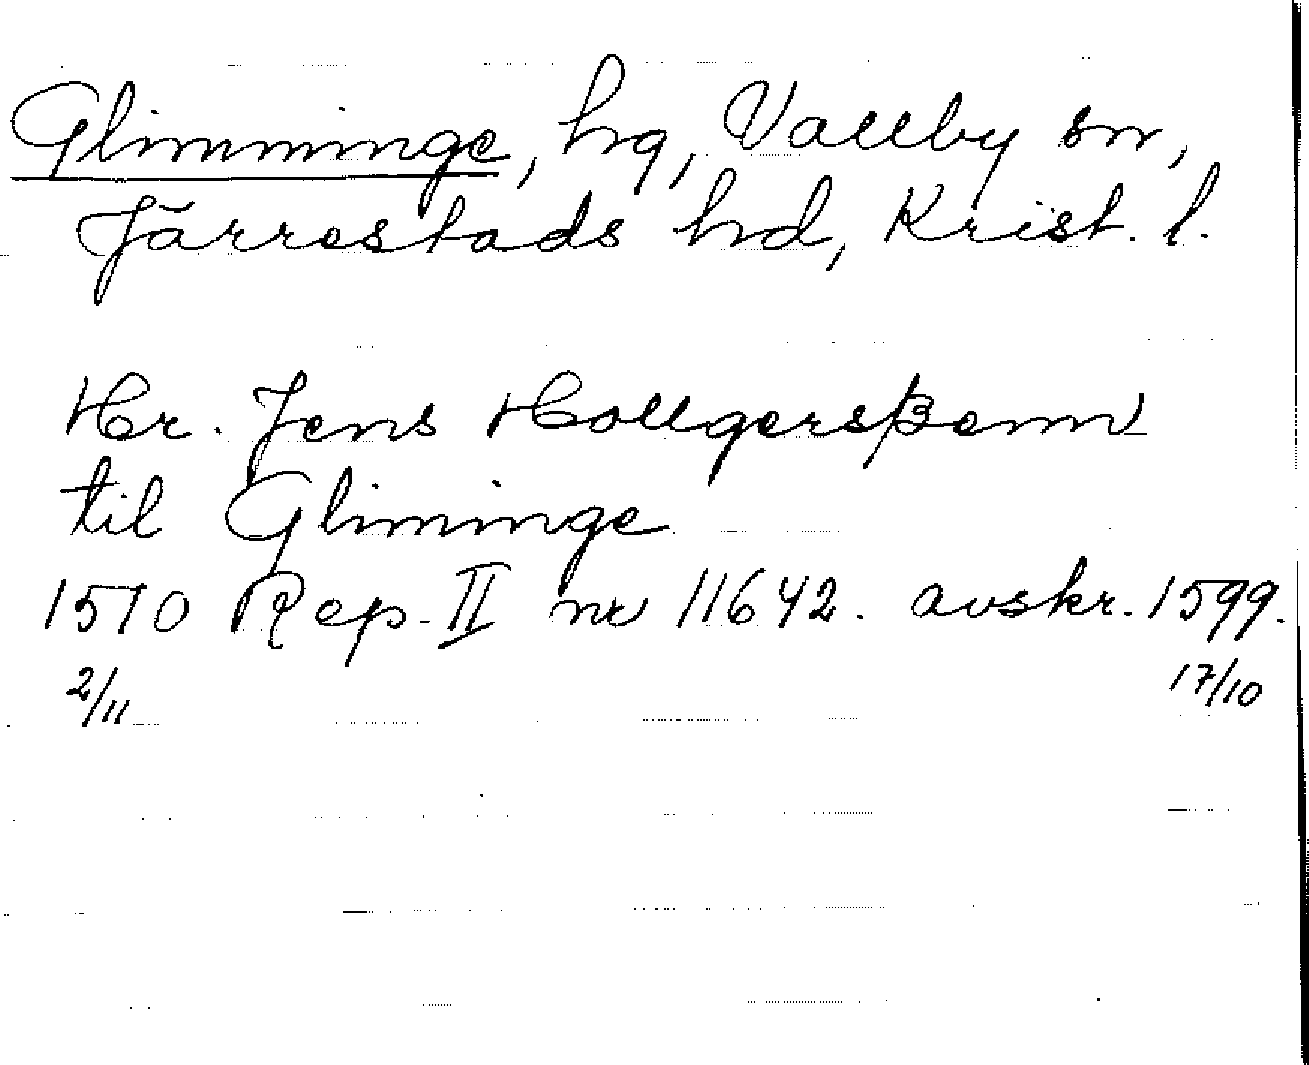 Glimminge, hg, Vallby sn,
Järrestads hd, Krist. l.
Hr. Jens Hollgersßenn
til Gliminge
1510 Rep. II nr 11642. avskr. 1599.
2/11 17/10